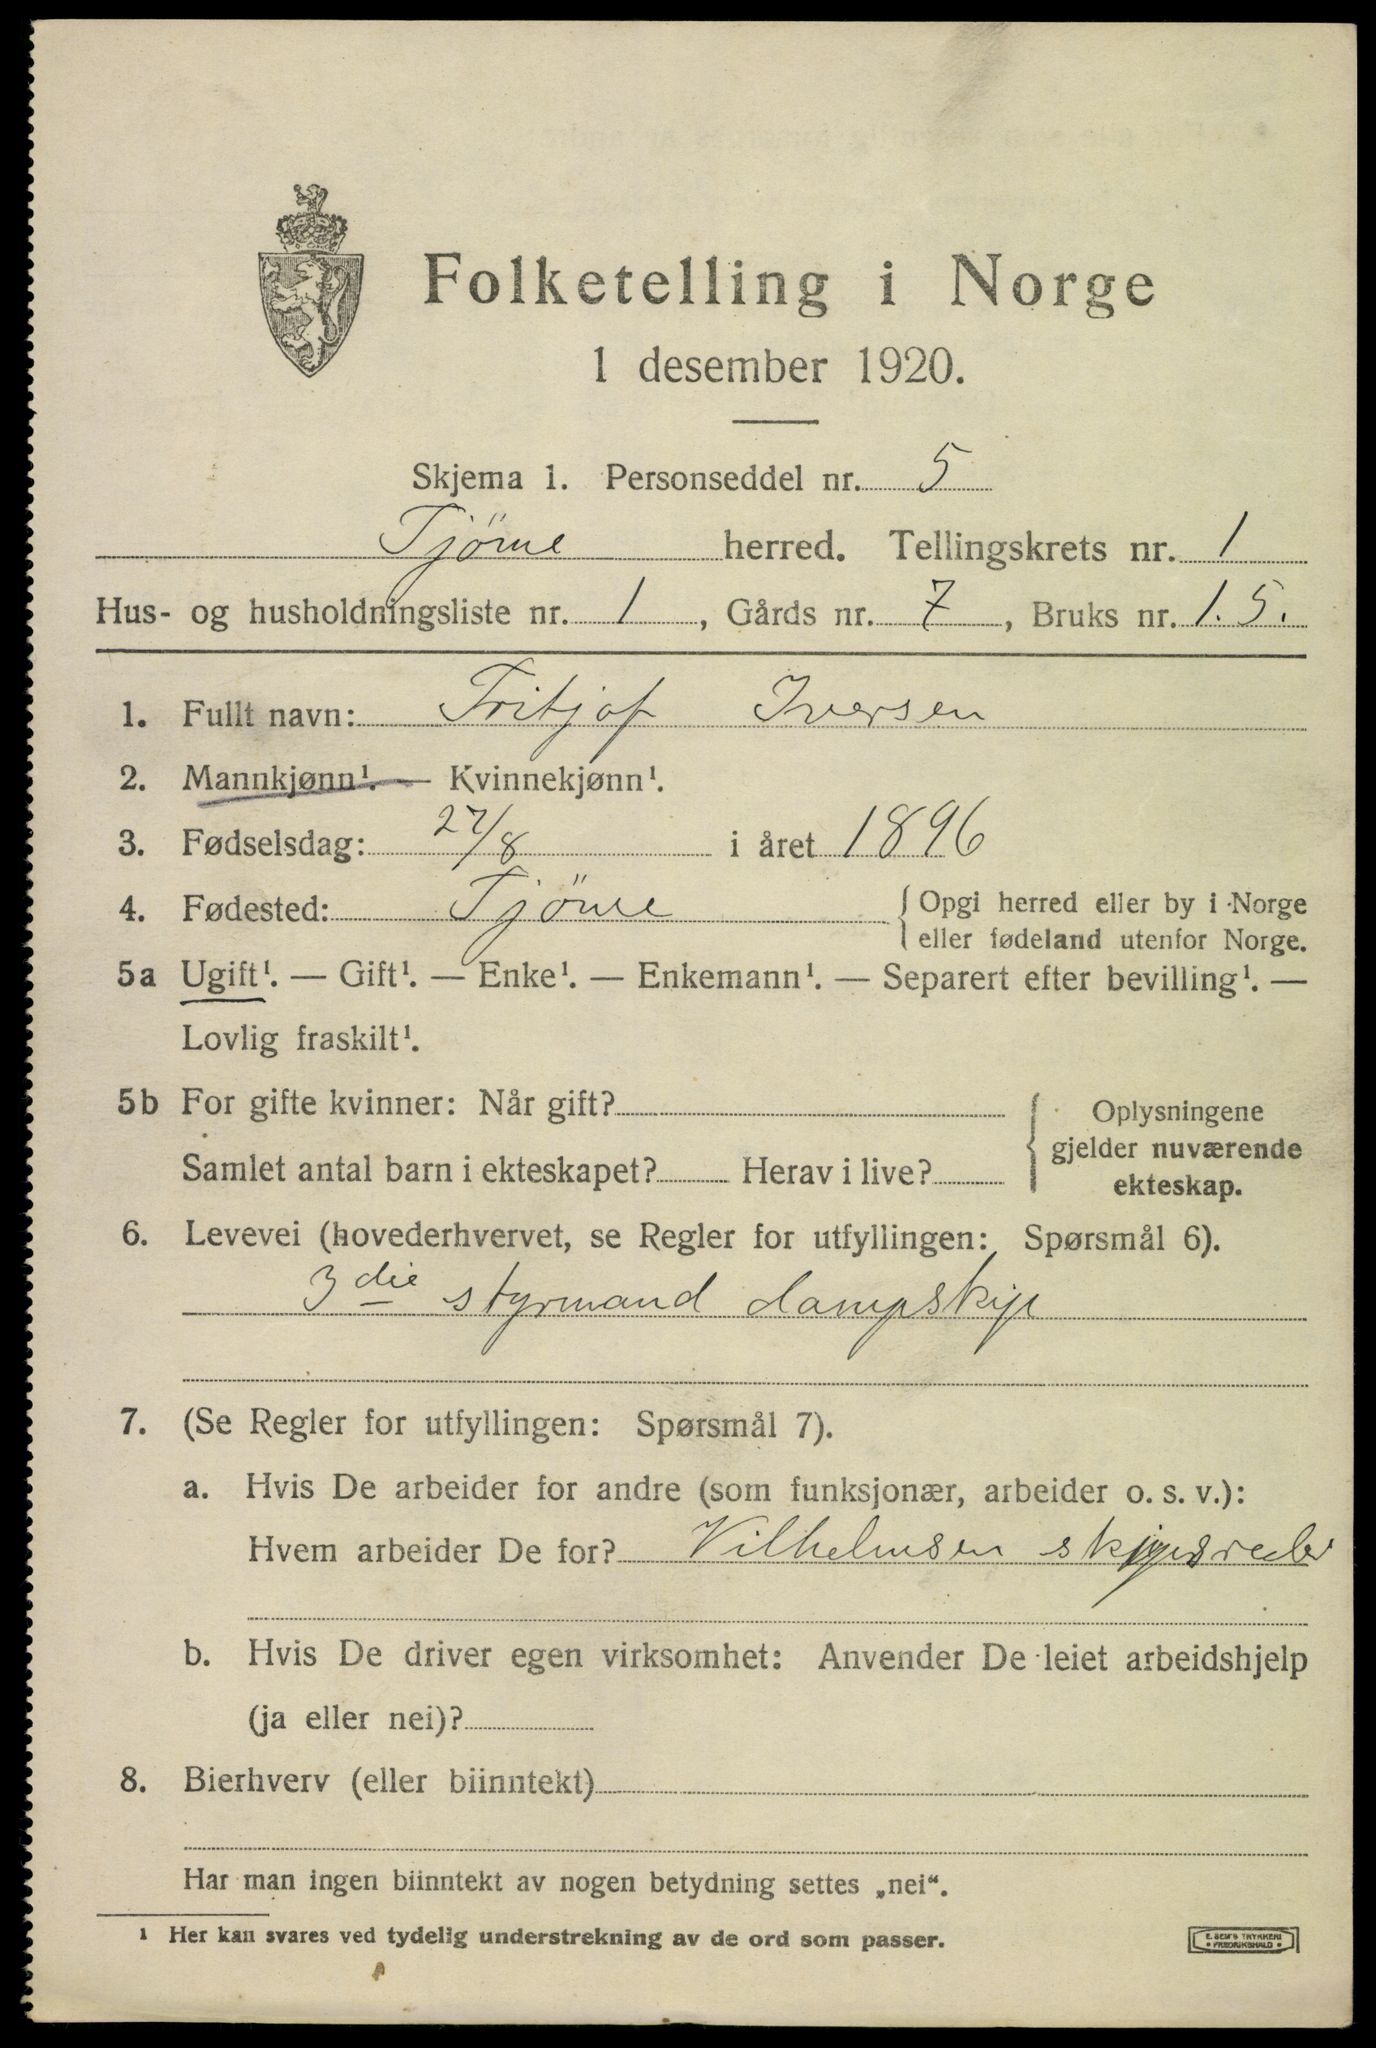 Folketelling i Norge
1 desember 1920.
Skjema 1. Personseddel nr. 5
Tjöme herred. Tellingskrets nr. 1
Hus- og husholdningsliste nr. 1, Gårds nr. 7, Bruks nr. 1.5.
1. Fullt navn: Fritjof Iversen
2. Mannkjønn¹. — Kvinnekjønn¹.
3. Fødselsdag: 27/8 i året 1896
4. Fødested: Tjöme { Opgi herred eller by i Norge
eller fødeland utenfor Norge.
5a Ugift¹. — Gift¹. — Enke¹. — Enkemann¹. — Separert efter bevilling¹. —
Lovlig fraskilt¹.
5b For gifte kvinner: Når gift? { Oplysningene
gjelder nuværende
Samlet antal barn i ekteskapet? Herav i live?
ekteskap.
6. Levevei (hovederhvervet, se Regler for utfyllingen: Spørsmål 6).
3die styrmand dampskip
7. (Se Regler for utfyllingen: Spørsmål 7).
a. Hvis De arbeider for andre (som funksjonær, arbeider o. s. v.):
Hvem arbeider De for? Vilhelmsen skipsreder
b. Hvis De driver egen virksomhet: Anvender De leiet arbeidshjelp
(ja eller nei)?
8. Bierhverv (eller biinntekt)
Har man ingen biinntekt av nogen betydning settes „nei“.
¹ Her kan svares ved tydelig understrekning av de ord som passer.
E. SEM'S TRYKKERI
• FREDRIKSHALD •